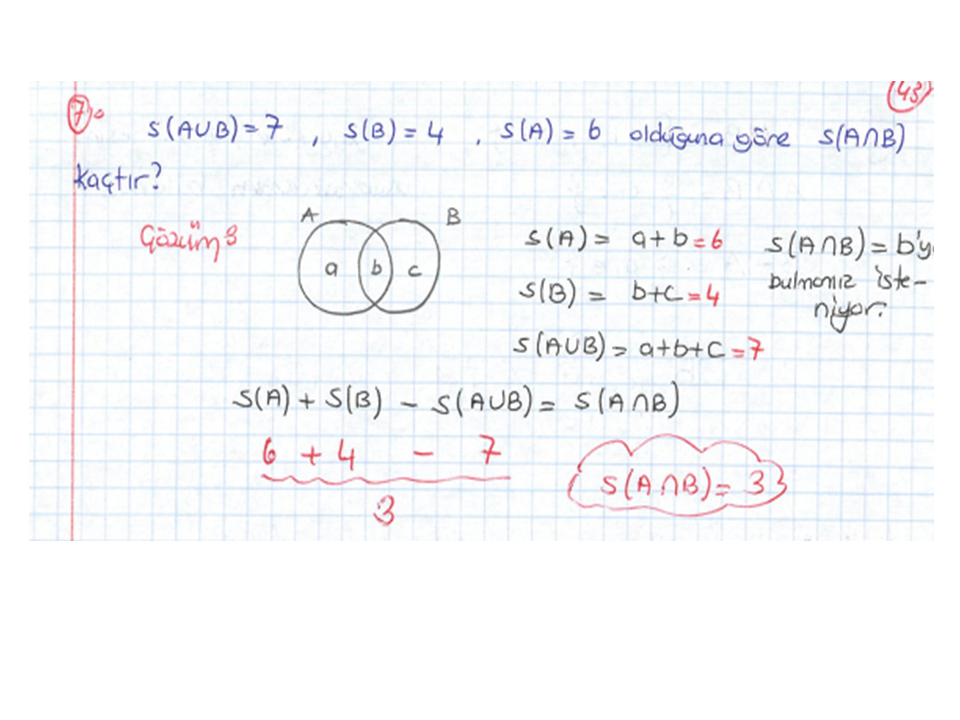 43
7. S(A∪B) = 7 , S(B) = 4 , S(A) = 6 olduğuna göre S(A∩B)
kaçtır?
Çözüm:
A B
a b c
S(A) = a+b = 6
S(B) = b+c = 4
S(A∪B) = a+b+c = 7
S(A∩B) = b'y
bulmamız iste-
niyor.
S(A) + S(B) - S(A∪B) = S(A∩B)
6 + 4 - 7
3
S(A∩B) = 3